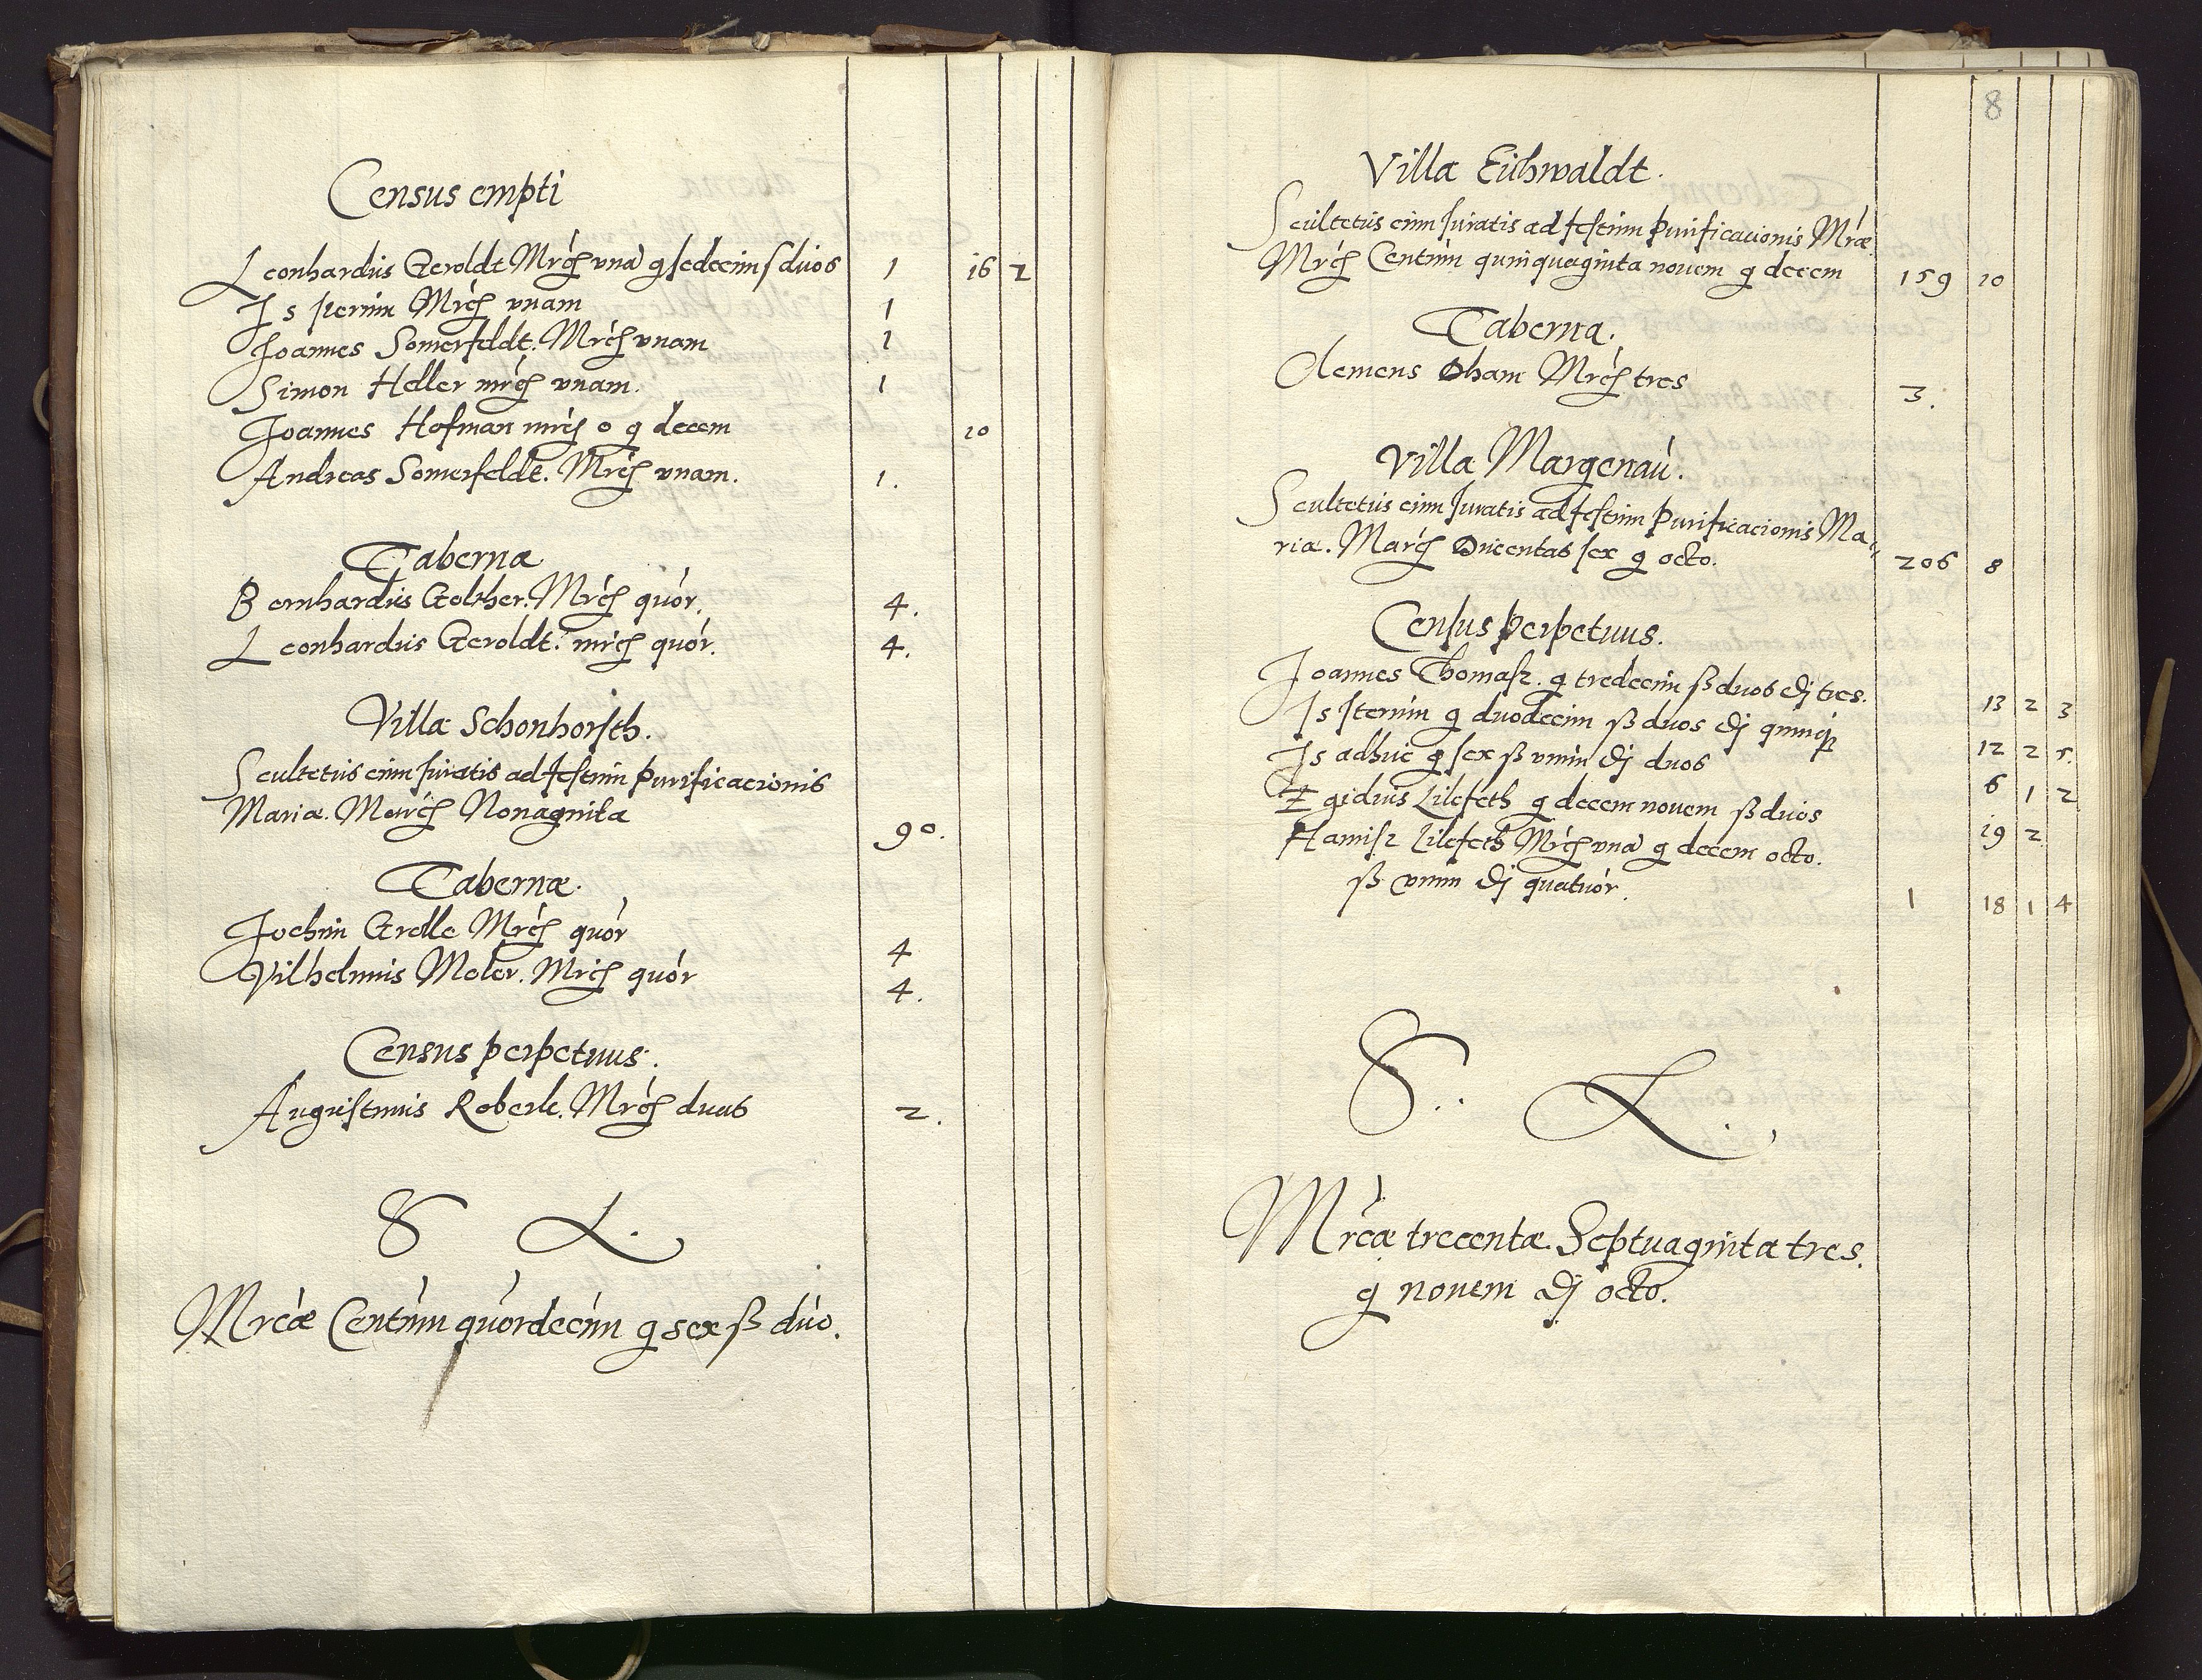 Census empti
Leonhardus Geroldt Mrcs unā g sedecim ß duos 1 16 2
Is iterum Mrcs vnam 1
Joannes Somerfeldt. Mrcs vnam 1
Simon Heller mrcs vnam. 1
Joannes Hofman mrcs o g decem 10
Andreas Somerfeldt. Mrcs vnam. 1.
Tabernæ
Bernhardus Mrcs quor. 4.
Leonhardus Geroldt. mrcs quor. 4.
Villa Schonhorsth.
Scultetus cum Juratis ad festum Purificacionis
Mariæ. Marcs Nonaginta 90.
Tabernæ.
Jochim Grolle Mrcs quor 4
Vilhelmus Moler. Mrcs quor 4.
Census perpetuus.
Augustinus Roberle. Mrcs duas 2.
S L.
Mrcæ Centum quordecim g sex ß duo.
8
Villa Eichwaldt.
Scultetus cum Juratis ad festum Purificacionis Mriæ
Mrcs Centum quinquaginta novem g decem 159 10
Taberna.
Clemens Dham Mrcs tres 3.
Villa Margenau.
Scultetus cum Juratis ad festum Purificacionis Ma-
riæ. Marcs Ducentas sex g octo. 206 8
Census perpetuus.
Joannes Thomasz. g tredecim ß duos dj tres. 13 2 3
Is Iterum g duodecim ß duos dj quinq 12 2 5.
Is adhuc g sex ß vnum dj duos 6 1 2
Egidius Lilefeth g decem novem ß duos 19 2
Hannisz Lilefeth Mrcs vnā g decem octo.
ß vnum dj quatuor. 1 18 1 4
S. L.
Mrcæ trecentæ Septuaginta tres.
g novem dj octo.